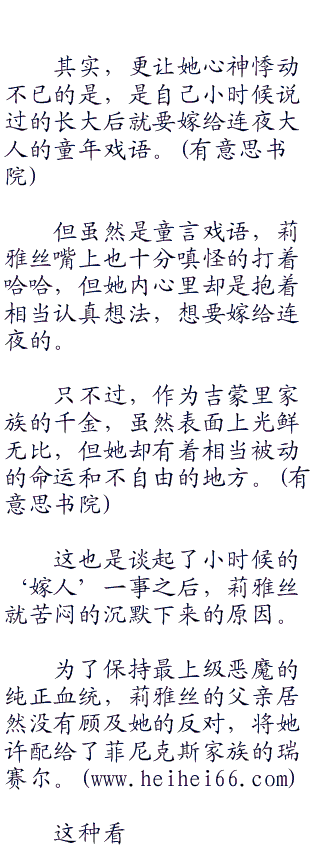 其实，更让她心神悸动
不已的是，是自己小时候说
过的长大后就要嫁给连夜大
人的童年戏语。(有意思书
院)
但虽然是童言戏语，莉
雅丝嘴上也十分嗔怪的打着
哈哈，但她内心里却是抱着
相当认真想法，想要嫁给连
夜的。
只不过，作为吉蒙里家
族的千金，虽然表面上光鲜
无比，但她却有着相当被动
的命运和不自由的地方。(有
意思书院)
这也是谈起了小时候的
‘嫁人’一事之后，莉雅丝
就苦闷的沉默下来的原因。
为了保持最上级恶魔的
纯正血统，莉雅丝的父亲居
然没有顾及她的反对，将她
许配给了菲尼克斯家族的瑞
赛尔。(www.heihei66.com)
这种看